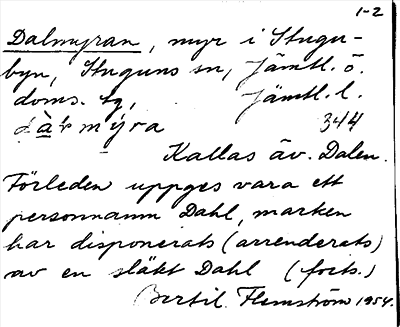 1-2
Dalmyran, myr i Stugu-
byn, Stuguns sn, Jämtl. ö.
doms. tg, Jämtl. l.
344
Kallas äv. Dalen.
Förleden uppges vara ett
personnamn Dahl, marken
har disponerats (arrenderats)
av en släkt Dahl (forts.)
Bertil Flemström 1954.